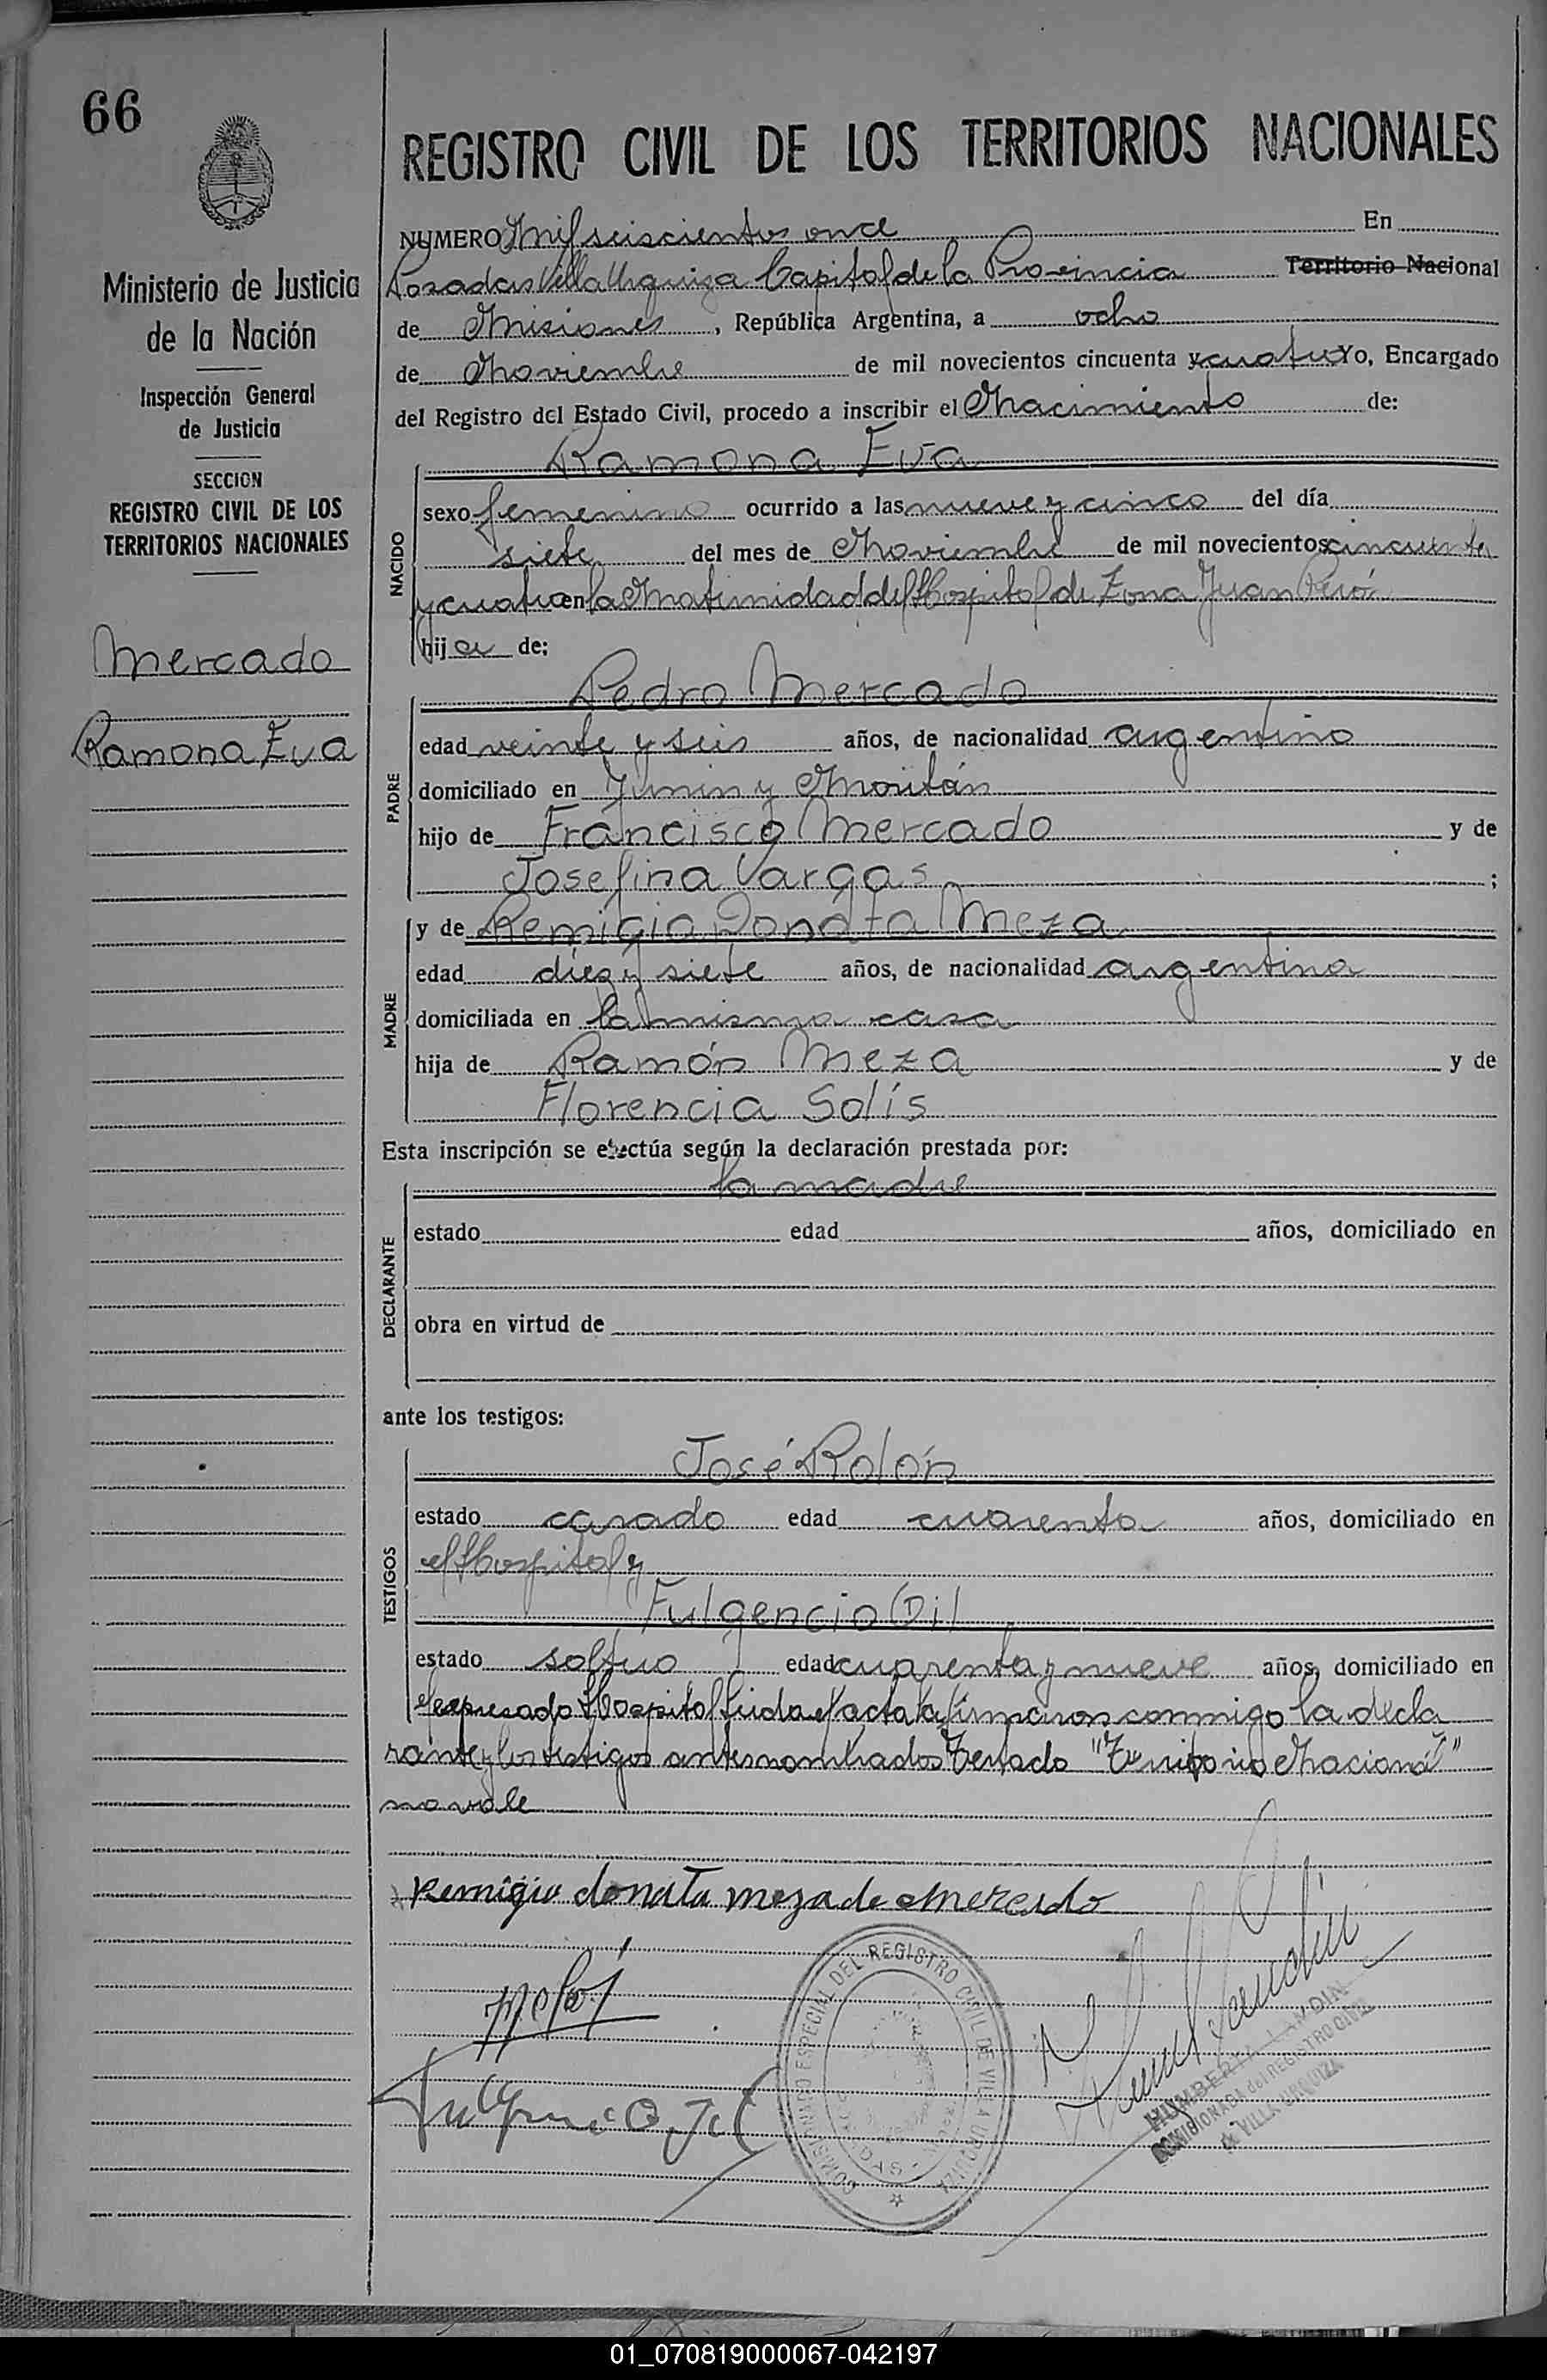 66
REGISTRO CIVIL DE LOS TERRITORIOS NACIONALES
Ministerio de Justicia
de la Nación
Inspección General
de Justicia
SECCION
REGISTRO CIVIL DE LOS
TERRITORIOS NACIONALES
Mercado
Ramona Eva
NUMERO Mil seiscientos once En
Posadas Villa Urquiza Capital de la Provincia Territorio Nacional
de Misiones, República Argentina, a ocho
de Noviembre de mil novecientos cincuenta y cuatro Yo, Encargado
del Registro del Estado Civil, procedo a inscribir el Nacimiento de:
NACIDO
Ramona Eva
sexo femenino ocurrido a las nueve y cinco del día
siete del mes de Noviembre de mil novecientos cincuenta
y cuatro en la Maternidad del Hospital de Zona Juan Perón
hija de:
PADRE
Pedro Mercado
edad veinte y seis años, de nacionalidad argentino
domiciliado en Junin y
hijo de Francisco Mercado y de
Josefina Vargas;
MADRE
y de Remigia Donata Meza
edad diez y siete años, de nacionalidad argentina
domiciliada en la misma casa
hija de Ramón Meza y de
Florencia Solís
Esta inscripción se efectúa según la declaración prestada por:
DECLARANTE
la madre
estado edad años, domiciliado en
obra en virtud de
ante los testigos:
TESTIGOS
José Rolón
estado casado edad cuarenta años, domiciliado en
el Hospital y
Fulgencio Gil
estado soltero edad cuarenta y nueve años, domiciliado en
el expresado Hospital Leida el acta la firmaron conmigo la decla
rante y los testigos antes nombrados Testado "Territorio Nacional"
no vale
Remigia donata meza de Mercado
COMISIONADO ESPECIAL DEL REGISTRO CIVIL DE VILLA URQUIZA
HUMBERTA LANDIN
COMISIONADA del REGISTRO CIVIL
de VILLA URQUIZA
01_070819000067-042197